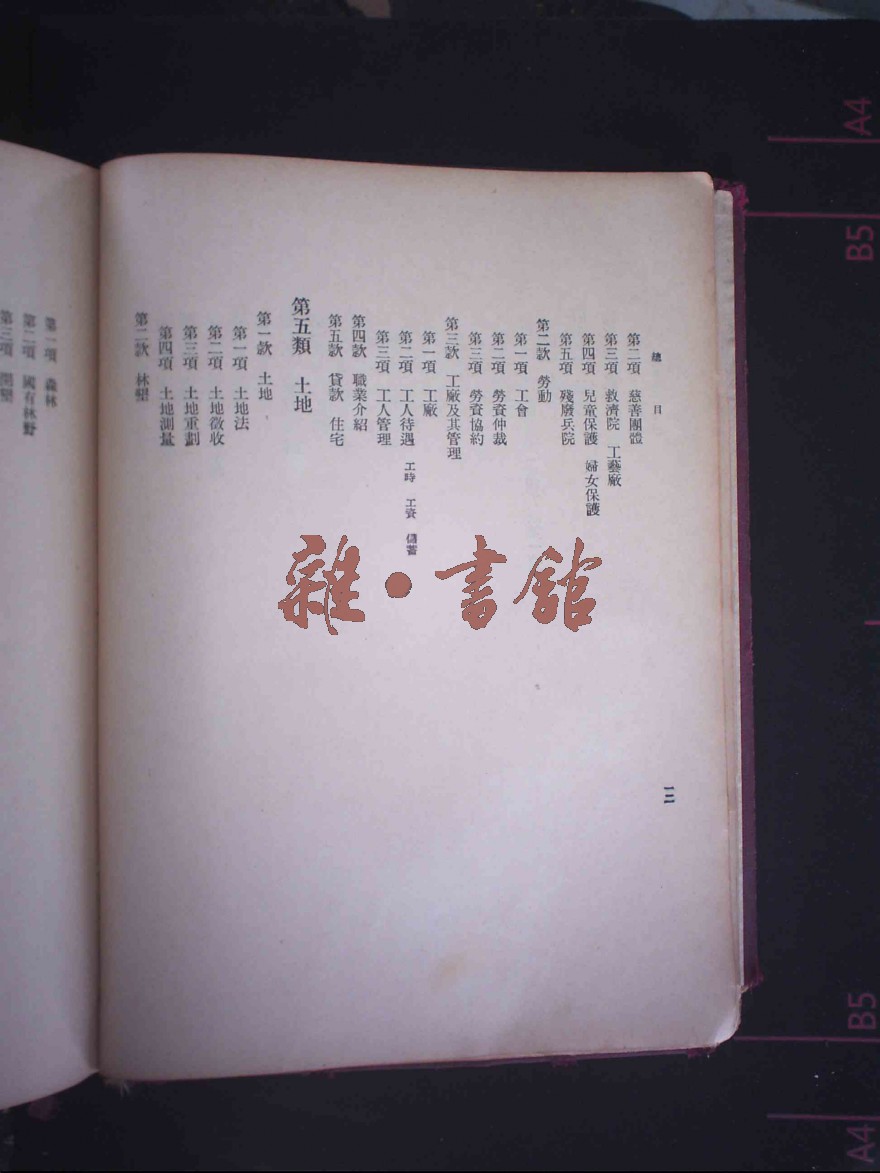 總目
第二項 慈善團體
第三項 救濟院 工藝廠
第四項 兒童保護 婦女保護
第五項 殘廢兵院
第二款 勞動
第一項 工會
第二項 勞資仲裁
第三項 勞資協約
第三款 工廠及其管理
第一項 工廠
第二項 工人待遇 工時 工資 儲蓄
第三項 工人管理
第四款 職業介紹
第五款 貸款 住宅
第五類 土地
第一款 土地
第一項 土地法
第二項 土地徵收
第三項 土地重劃
第四項 土地測量
第二款 林墾
一二
第一項 森林
第二項 國有林野
第三項 開墾
雜·書館
A4
B5
B5
A4